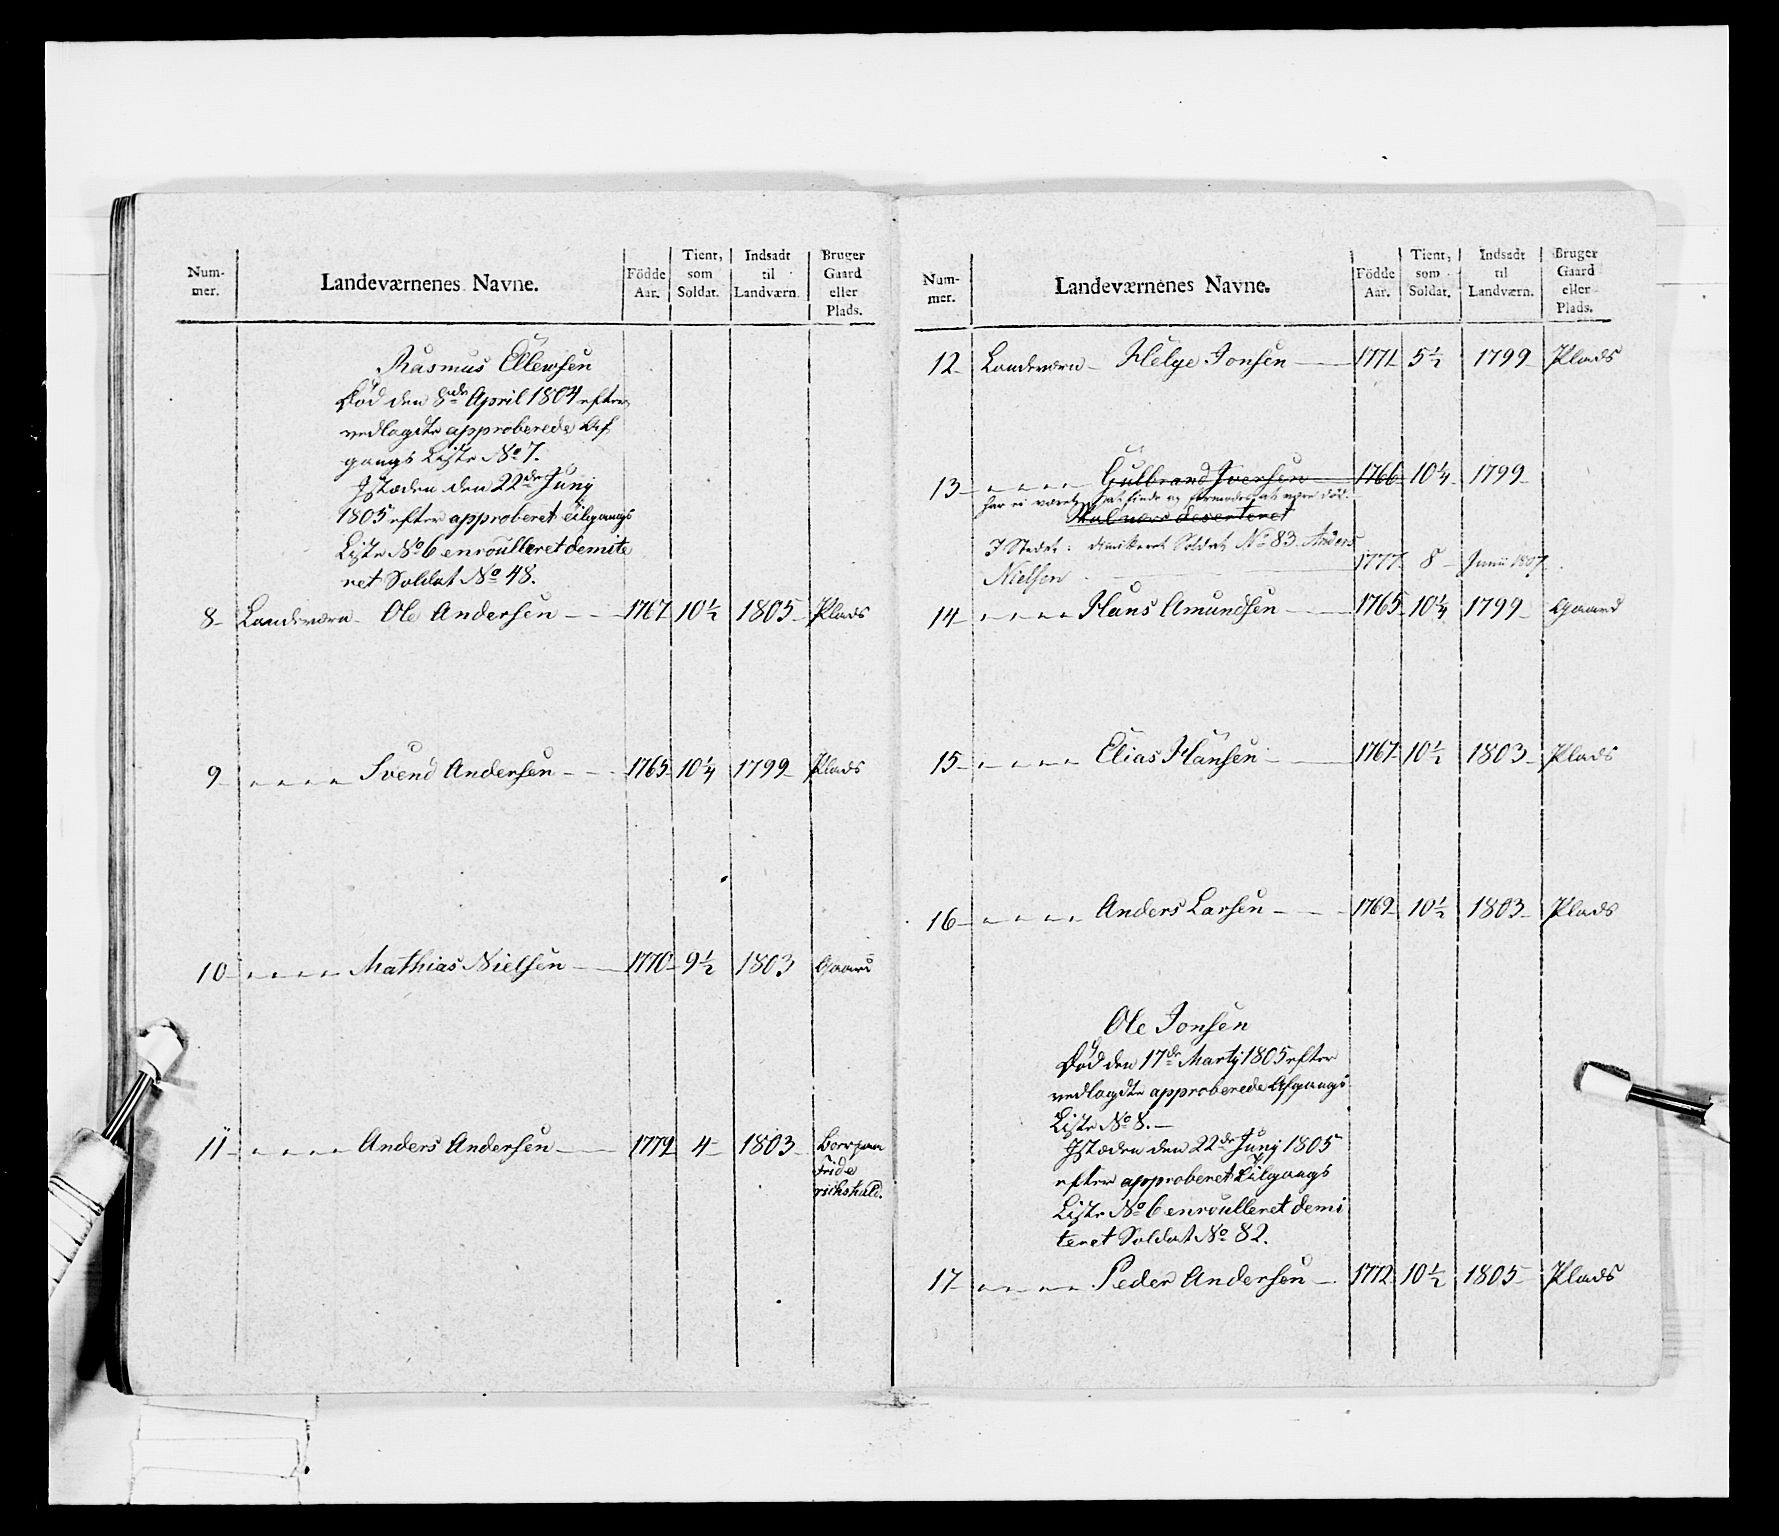 Num-
mer.
Landeværnenes Navne.
Födde
Aar.
Tient,
som
Soldat.
Indsadt
til
Landværn.
Bruger
Gaard
eller
Plads.
Rasmus Ellewsen
Död den 8de April 1804 efter
vedlagdte approberede Af
gangs Liste No 7.
Istæden den 22de Junij
1805 efter approberet tilgangs
Liste No 6 enroulleret demite
ret Soldat No 48.
8 Landeværn Ole Andersen 1767 10½ 1805 Plads
9 " " " " Svend Andersen 1765 10¼ 1799 Plads
10 " " " " Mathias Nielsen 1770 9½ 1803 Gaard
11 " " " " Anders Andersen 1779 4 1803
Fride
richshald.
Num-
mer.
Landeværnenes Navne.
Födde
Aar.
Tient,
som
Soldat.
Indsadt
til
Landværn.
Bruger
Gaard
eller
Plads.
12 Landeværn Helge Jonsen 1771 5½ 1799 Plads
13 " " " " Gulbrand Iversen 1766 10¼ 1799
har ei været at finde og formodes at være död.
Skal være deserteret
I Stedet: dimitteret Soldat No 83. Anders
Nielsen 1777 8 Junii 1807
14 " " " " Hans Amundsen 1765 10¼ 1799 Gaard
15 " " " " Elias Hansen 1767 10½ 1803 Plads
16 " " " " Anders Larsen 1769 10½ 1803 Plads
Ole Jonsen
Död den 17de Martij 1805 efter
vedlagdte approberede Afgangs
Liste No 8.
Istæden den 22de Junij 1805
efter approberet Tilgangs
Liste No 6 enroulleret demi
teret Soldat No 82.
17 " " " " Peder Andersen 1772 10½ 1805 Plads